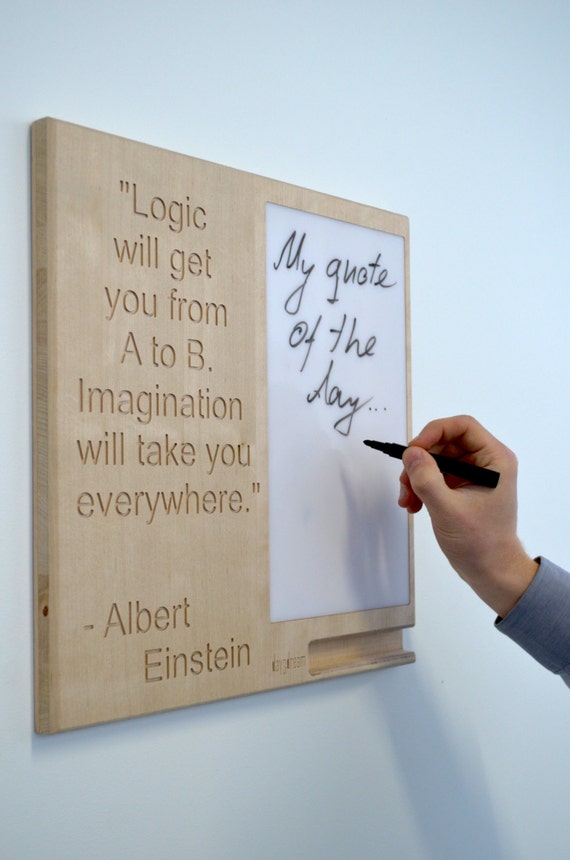 "Logic
will get
you from
A to B.
Imagination
will take you
everywhere."
- Albert
Einstein
My quote
of the
day...
daydream